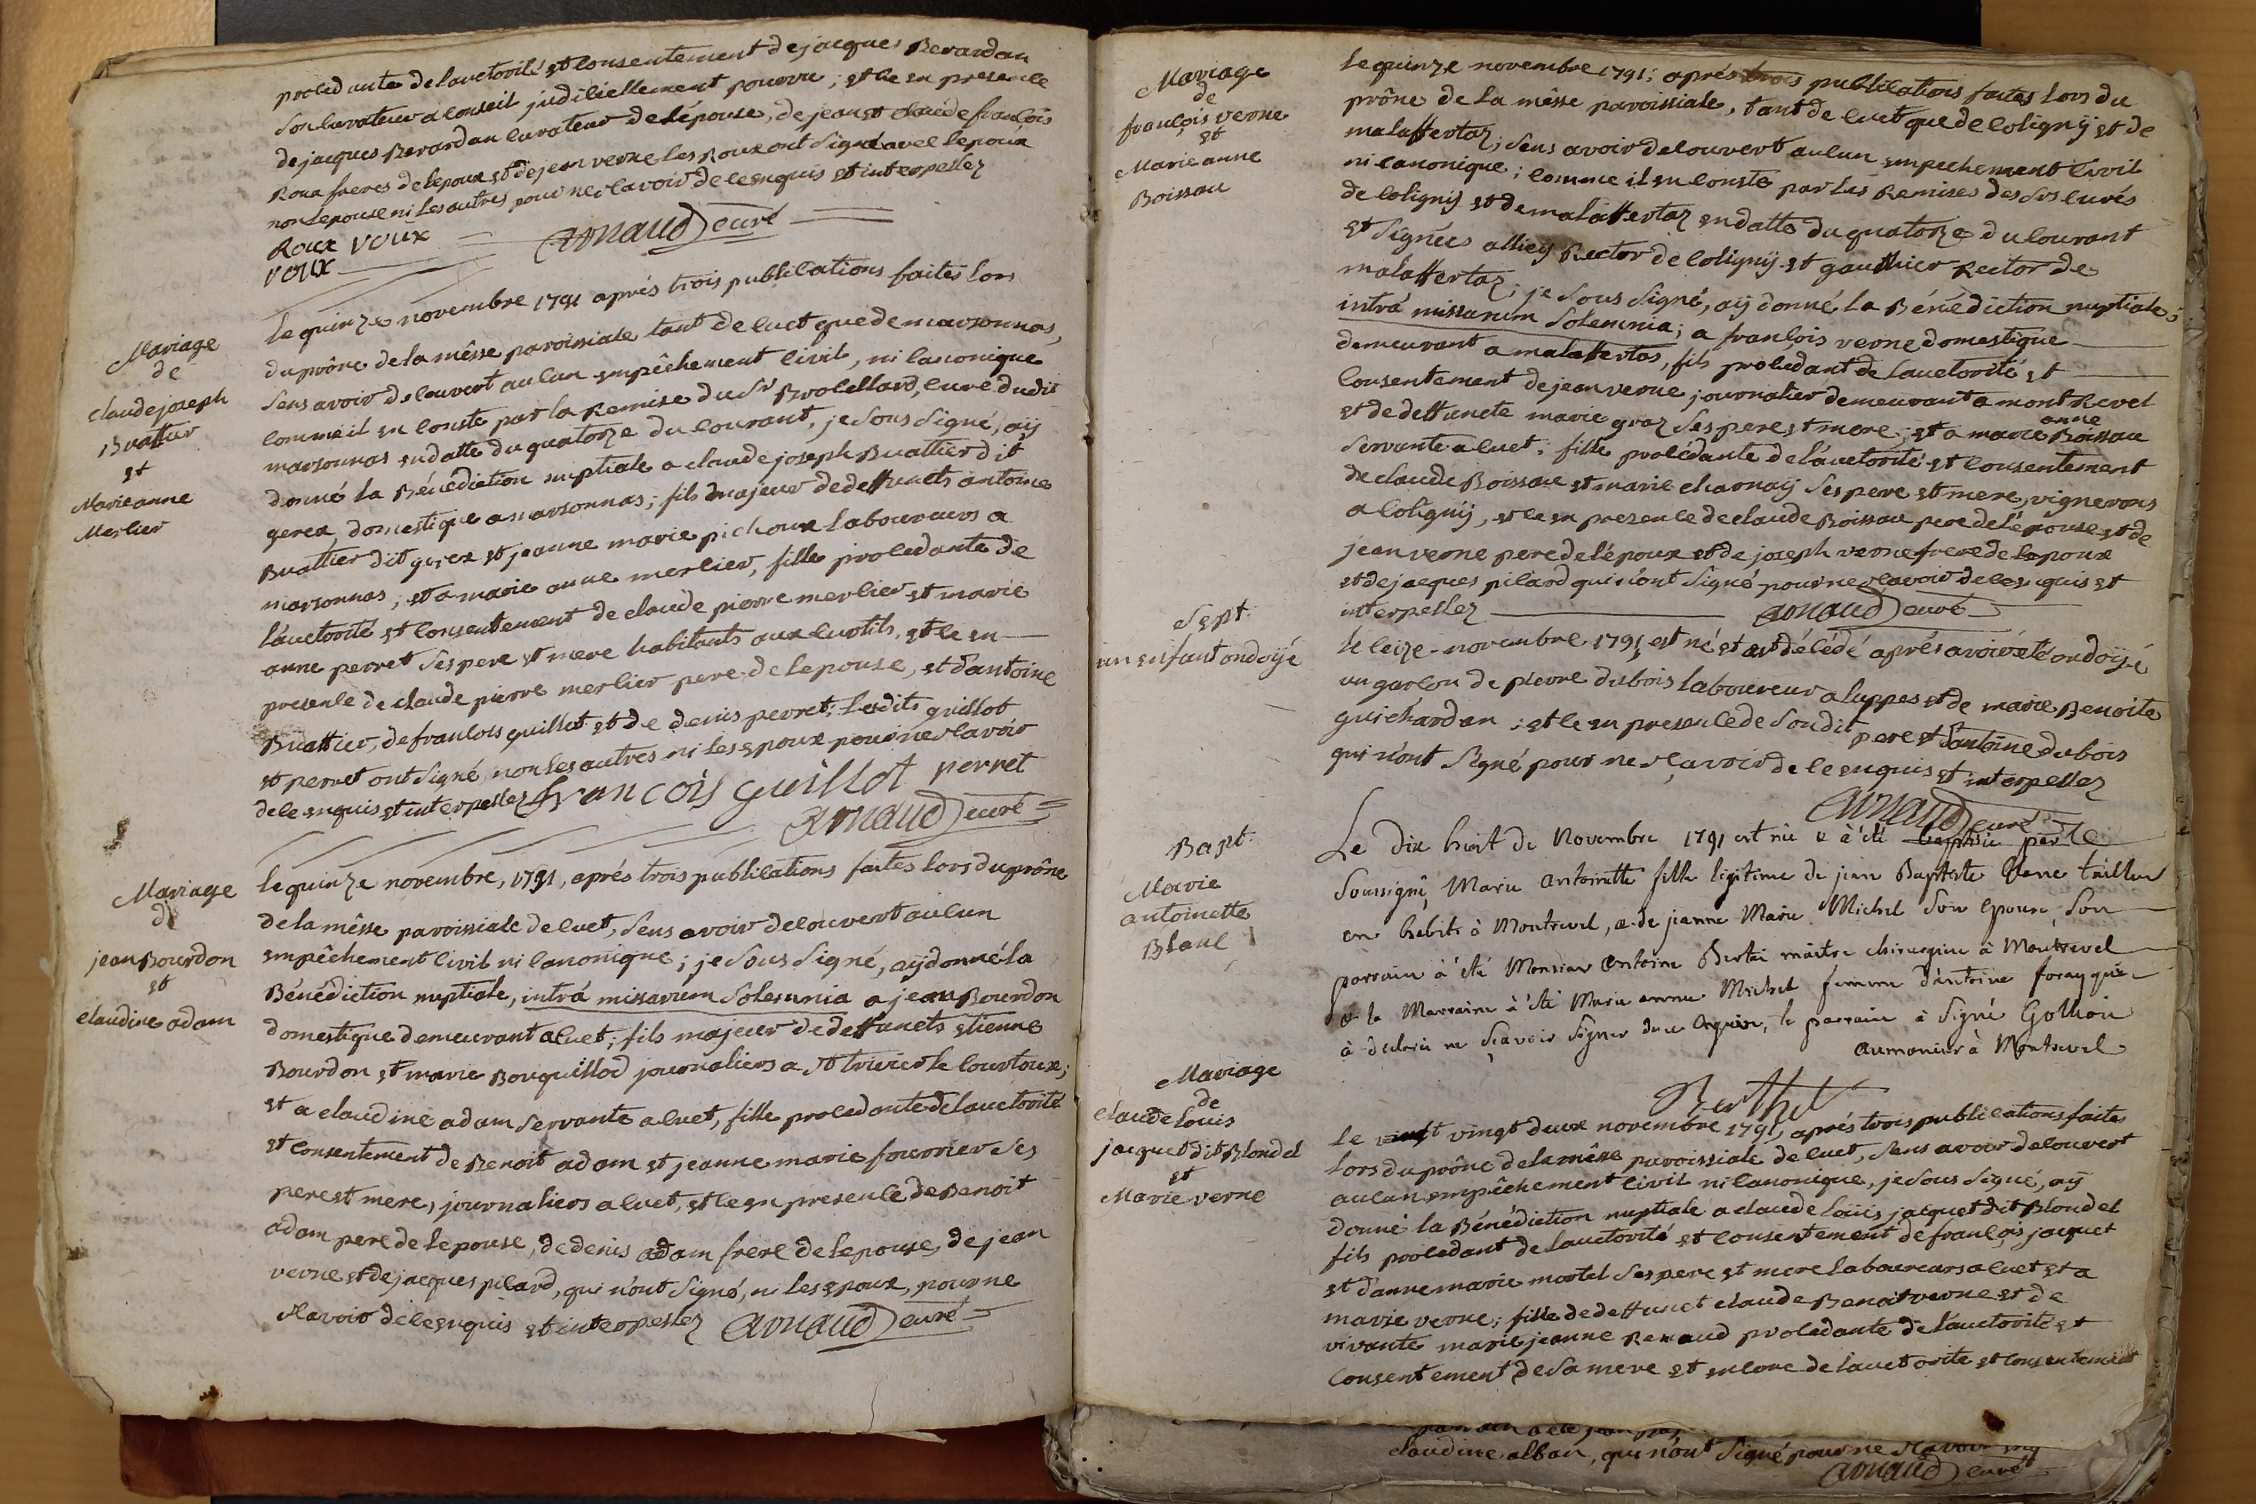 procedante de lauctorité et consentement de jacques Berardan
son curateur a conseil judiciellement pourvu ; et ce en presence
de jacques Berardan curateur de l'épouse, de jean et claude françois
Roux freres de lepoux et de jean verne les Roux ont signé avec lepoux
non lepouse ni les autres pour ne sçavoir de ce enquis et interpellez
Roux voux
voux
arnaud curé
Mariage
de
claude joseph
Buattier
et
Marie anne
Merlier
le quinze novembre 1791 aprés trois publications faites lors
du prône de la mêsse paroissiale tant de cuet que de marsonnas,
sens avoir decouvert aucun empêchement civil, ni canonique
comme il en conste par la Remise du Sr Brocellard, curé dudit
marsonnas en datte du quatorze du courant, je sous signé, aÿ
donné la Bénédiction nuptiale a claude joseph Buattier dit
gerex, domestique a marsonnas ; fils majeur de deffuncts antoine
Buattier dit gerex et jeanne marie pichoux laboureurs a
marsonnas ; et a marie anne merlier, fille procedante de
láuctorité et consentement de claude pierre merlier et marie
anne perret ses pere et mere habitants aux curtils, et ce en
presence de claude pierre merlier pere de lepouse, et d'antoine
Buattier, de francois guillot et de denis perret ; lesdits guillot
et perret ont signé non les autres ni les epoux pour ne sçavoir
de ce enquis et interpellez francois guillot perret
arnaud curé
Mariage
de
jean Bourdon
et
claudine adam
le quinze novembre, 1791, aprés trois publications faites lors du prône
de la mêsse paroissiale de cuet, sens avoir decouvert aucun
empêchement civil ni canonique ; je sous signé, aÿ donné la
Bénédiction nuptiale, intrá missarum solemnia a jean Bourdon
domestique demeurant a cuet ; fils majeur de deffuncts etienne
Bourdon et marie Bouquillod journaliers a St trivier de courtoux ;
et a claudine adam servante a cuet, fille procedante de lauctorité
et consentement de Benoit adam et jeanne marie fourrier ses
pere et mere, journaliers a cuet, et ce en presence de Benoit
adam pere de lepouse, de denis adam frere de lepouse, de jean
verne et de jacques pilard, qui n'ont signé, ni les epoux, pour ne
sçavoir de ce enquis et interpellez arnaud curé
Mariage
de
françois verne
et
Marie anne
Boissau
le quinze novembre 1791 ; aprés trois publications faites lors du
prône de la mêsse paroissiale, tant de cuet que de coligny et de
malaffertaz ; sens avoir decouvert aucun empechement civil
ni canonique ; comme il en conste par les Remises des Srs curés
de coligny et de malaffertaz en datte du quatorze du courant
et signées Rector de coligny et gauthier Rector de
malaffertaz ; je sous signé, aÿ donné la Bénédiction nuptiale ;
intrá missarum solemnia ; a françois verne domestique
demeurant a malaffertaz, fils procedant de lauctorité et
consentement de jean verne journalier demeurant a montRevel
et de deffuncte marie graz ses pere et mere ; et a marie anne Boissau
servante a cuet ; fille procédante de láuctorité et consentement
de claude Boissau et marie charnaÿ ses pere et mere, vignerons
a coligny, et ce en presence de claude Boissau pere de lépouse et de
jean verne pere de lépoux et de joseph verne frere de lepoux
et de jacques pilard qui n'ont signé pour ne sçavoir de ce enquis et
interpellez arnaud curé
Sept.
un enfant ondoÿé
le seize novembre 1791 est né et est décédé aprés avoir été ondoÿé
un garcon de pierre dubois laboureur a luppes et de marie Benoite
guichardan ; et ce en presence de son dit pere et d'antoine dubois
qui n'ont signé pour ne sçavoir de ce enquis et interpellez
arnaud curé
Bapt.
Marie
antoinette
Blanc
Le dix huit de Novembre 1791 est née e à été baptisée par le
soussigné, Marie antoinette fille légitime de jean Baptiste tailleur
en habits à Montrevel, e de jeanne Marie Michel son épouse, son
parrain à été Monsieur Antoine maitre chirurgien à Montrevel
e la Marraine à été Marie anne Michel femme d'antoine qui
à declaré ne sçavoir signer de ce enquise, le parrain à signé Gollion
aumonier à Montrevel
Berthet
Mariage
de
claude louis
jacquet dit Blondel
et
Marie verne
le vingt deux novembre 1791, aprés trois publications faites
lors du prône de la mêsse paroissiale de cuet, sens avoir decouvert
aucun empêchement civil ni canonique, je sous signé, aÿ
donné la Bénédiction nuptiale a claude loüis jacquet dit Blondel
fils procedant de lauctorité et consentement de françois jacquet
et d'anne marie mortel ses pere et mere laboureurs a cuet et a
marie verne ; fille de deffunct claude Benoit verne et de
vivante marie jeanne Renaud procedante de láuctorité et
consentement de sa mere et encore de lauctorite et consentement
claudine alban, qui n'ont signé pour ne sçavoir enq
arnaud curé